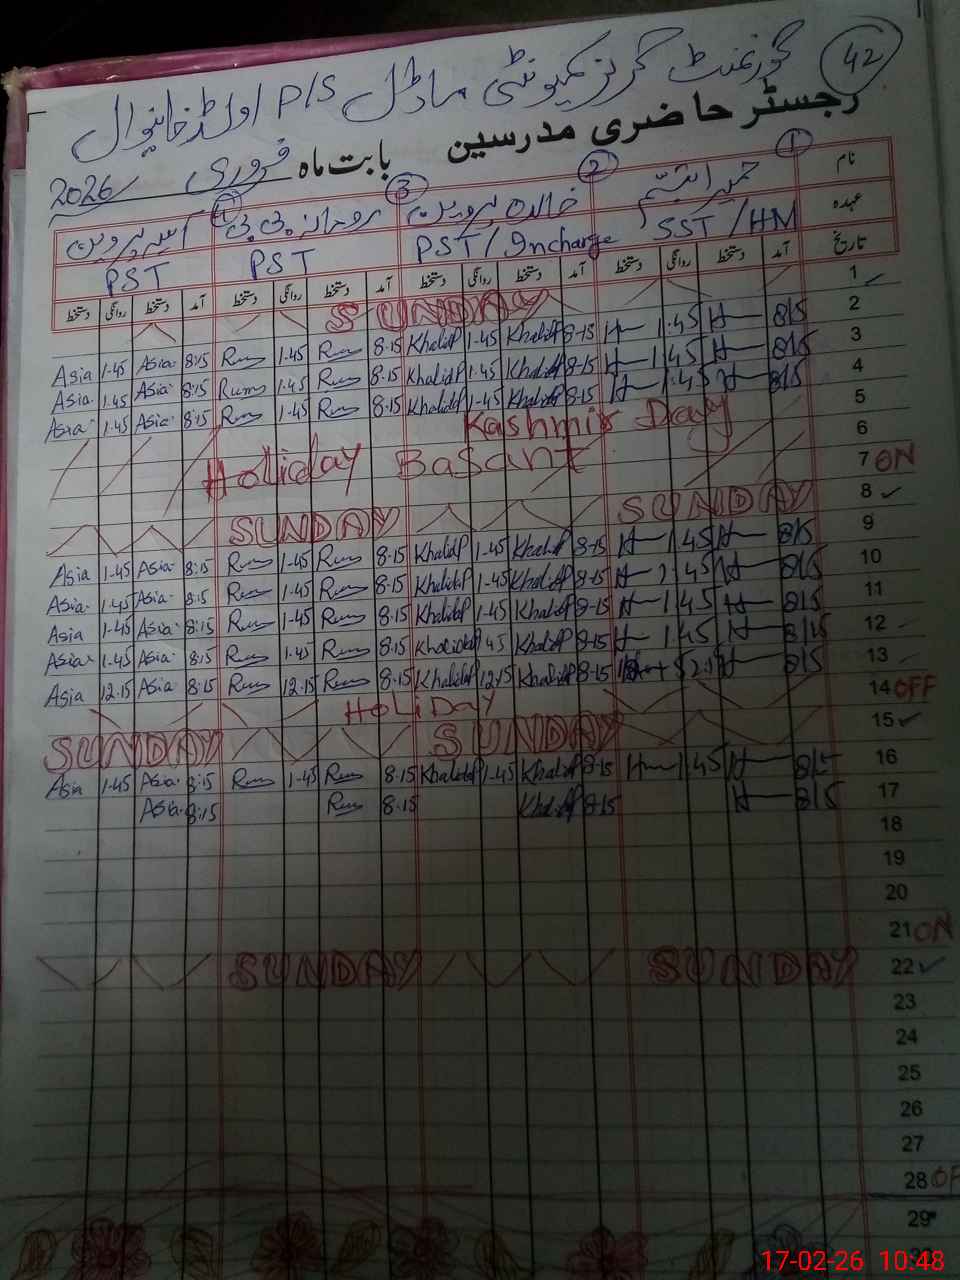 42
گورنمنٹ گرلز کمیونٹی ماڈل P/S اولڈ خانیوال
رجسٹر حاضری مدرسین بابت ماہ فروری 2026
نام 1 حمیرا تبسّم 2 خالدہ پروین 3 رومانہ بی بی 4 آسیہ پروین
عہدہ SST/HM PST/Incharge PST PST
تاریخ آمد دستخط روانگی دستخط آمد دستخط روانگی دستخط آمد دستخط روانگی دستخط آمد دستخط روانگی دستخط
1 SUNDAY
Asia 1-45 Asia 8:15 Rum 1-45 Rum 8-15 KhalidP 1-45 KhalidP 8-15 H 1:45 H 815 2
Asia 1-45 Asia 8:15 Rum 1-45 Rum 8-15 KhalidP 1-45 KhalidP 8-15 H 1:45 H 815 3
Asia 1-45 Asia 8:15 Rum 1-45 Rum 8-15 KhalidP 1-45 KhalidP 8-15 H 1:45 H 815 4
Kashmir Day 5
Holiday Basant 6
7 ON
SUNDAY SUNDAY 8
Asia 1-45 Asia 8:15 Rum 1-45 Rum 8-15 KhalidP 1-45 KhalidP 8-15 H 1:45 H 815 9
Asia 1-45 Asia 8:15 Rum 1-45 Rum 8-15 KhalidP 1-45 KhalidP 8-15 H 1:45 H 815 10
Asia 1-45 Asia 8:15 Rum 1-45 Rum 8-15 KhalidP 1-45 KhalidP 8-15 H 1:45 H 815 11
Asia 1-45 Asia 8:15 Rum 1-45 Rum 8-15 KhalidP 45 KhalidP 8-15 H 1:45 H 815 12
Asia 12-15 Asia 8:15 Rum 12-15 Rum 8-15 KhalidP 12-15 KhalidP 8-15 H 12:15 H 815 13
HOLIDAY 14 OFF
SUNDAY SUNDAY 15
Asia 1-45 Asia 8:15 Rum 1-45 Rum 8-15 KhalidP 1-45 KhalidP 8-15 H 1:45 H 815 16
Asia 8:15 Rum 8-15 KhalidP 8-15 H 815 17
18
19
20
21 ON
SUNDAY SUNDAY 22
23
24
25
26
27
28 OF
29
17-02-26 10:48